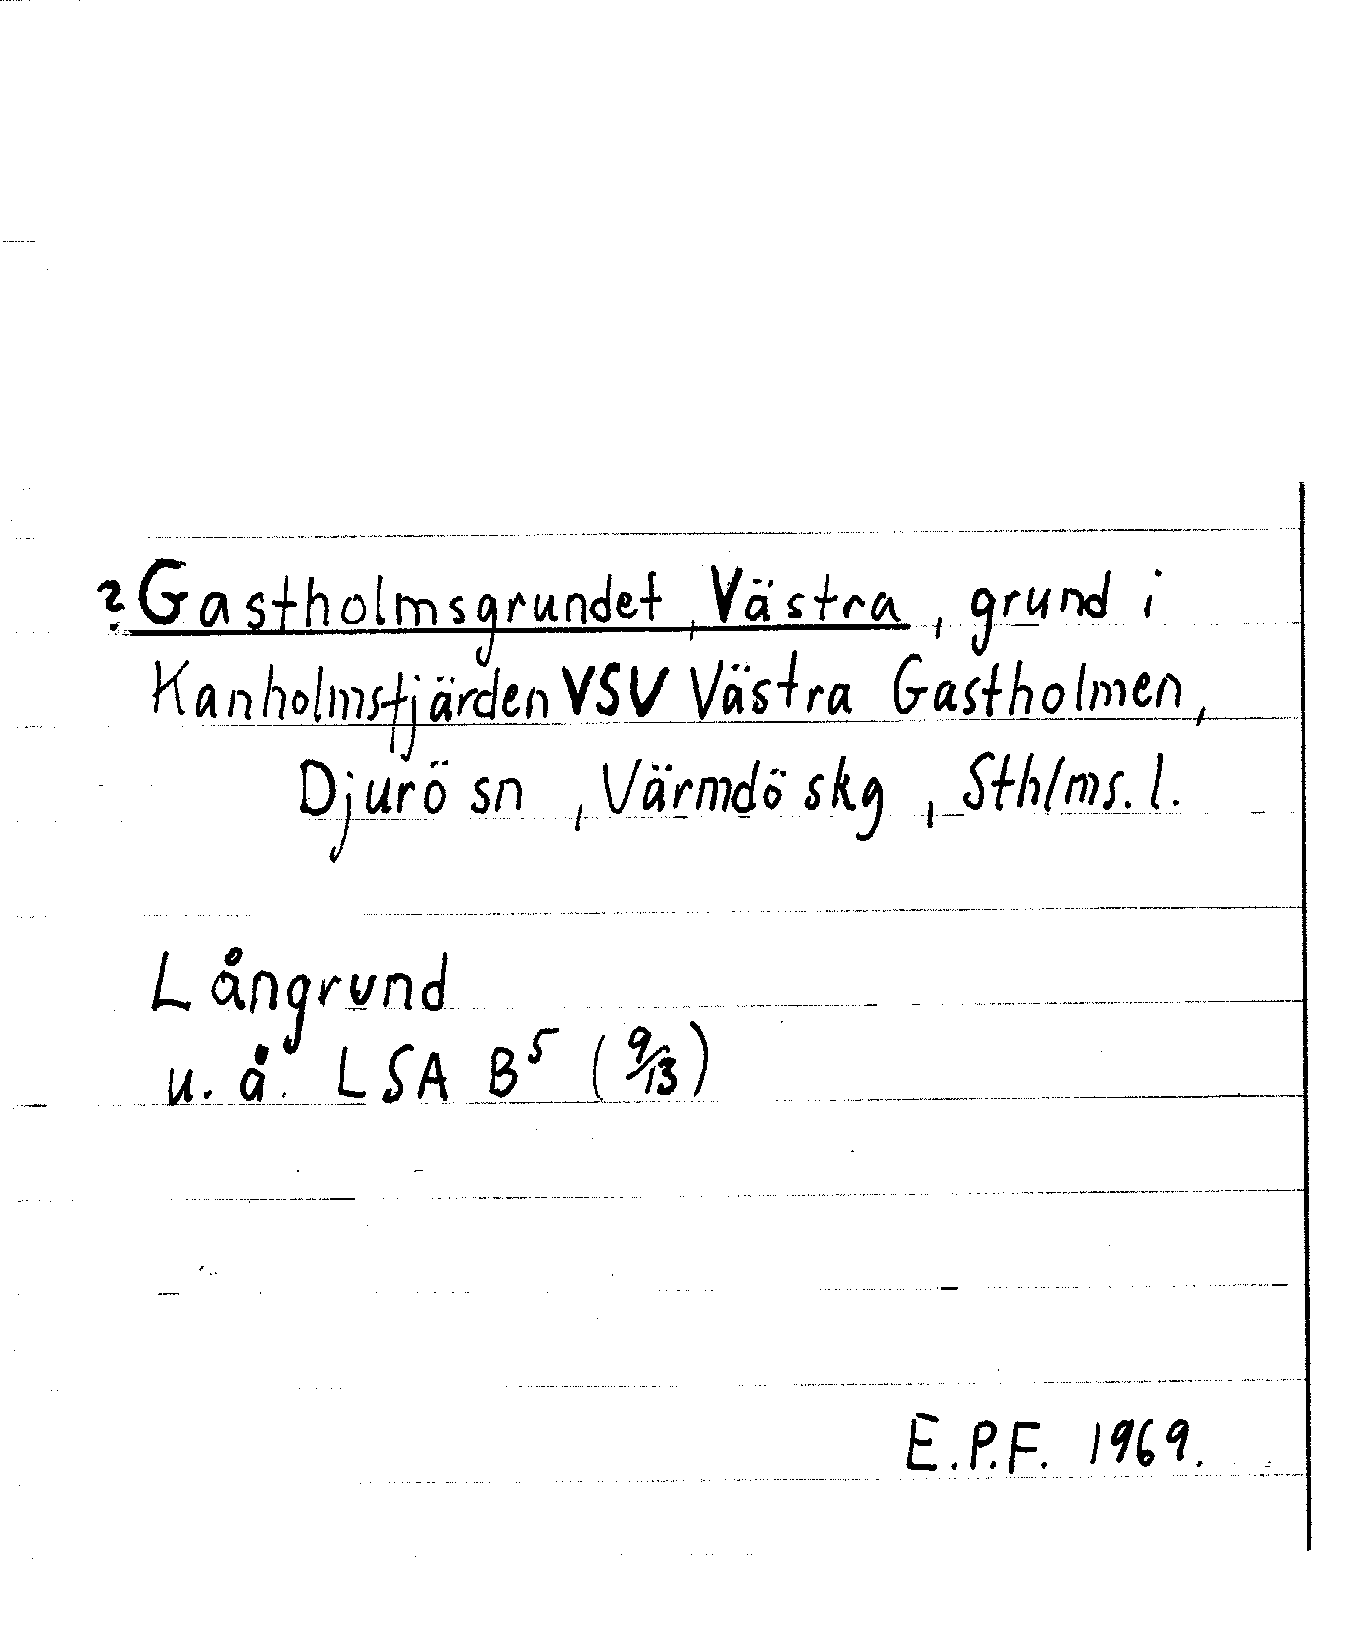 ? Gastholmsgrundet, Västra, grund i
Kanholmsfjärden VSV Västra Gastholmen,
Djurö sn, Värmdö skg, Sthlms. l.
Långrund
u. å. LSA B⁵ (9/13)
E.P.F. 1969.